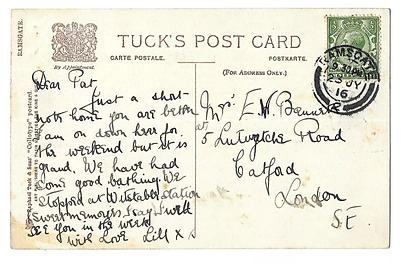 RAMSGATE.
By Appointment.
TUCK'S POST CARD
CARTE POSTALE.
POSTKARTE.
(FOR ADDRESS ONLY.)
RAMSGATE
JY
16
Raphael Tuck & Sons' "Collotype" postcard.
Dear Pat,
Just a short
note home you are better
am on down here for
the weekend but it is
grand. We have had
some good bathing. We
stopped at station
see you in the week
with Love Lill x
Mrs E. W.
5 Road
Catford
London
S.E